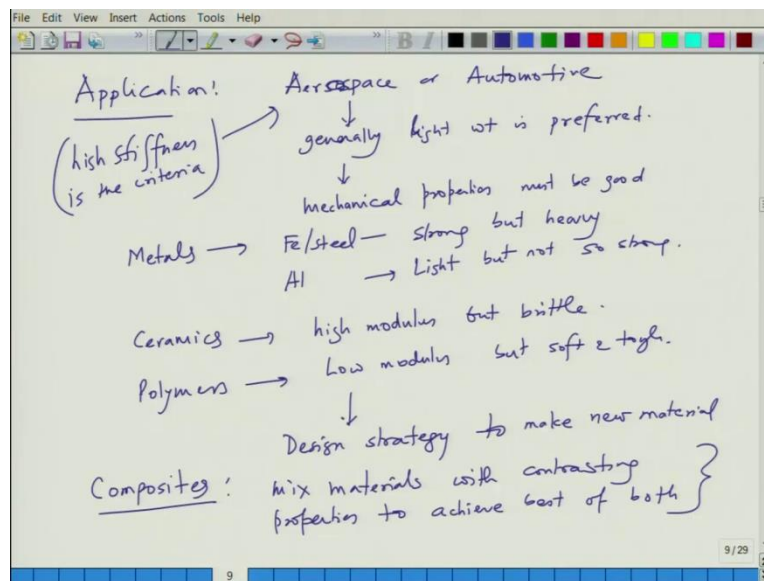 File Edit View Insert Actions Tools Help
B I
Application: Aerospace or Automotive
(high stiffness is the criteria)
generally light wt is preferred.
mechanical properties must be good
Metals → Fe/steel — strong but heavy
Al → Light but not so strong.
Ceramics → high modulus but brittle.
Polymers → Low modulus but soft & tough.
Design strategy to make new material
Composites: mix materials with contrasting
properties to achieve best of both
9/29
9